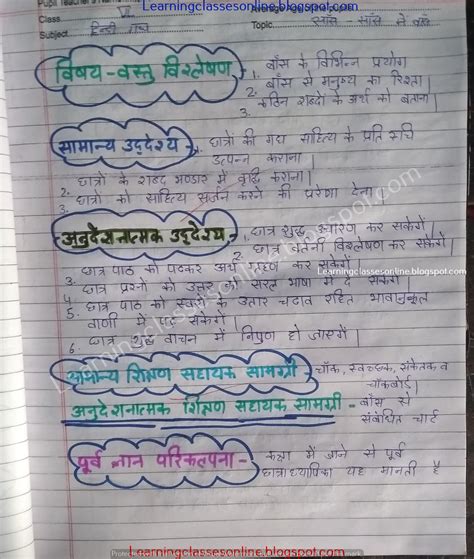 Learningclassesonline.blogspot.com
Pupil Teacher's
Class VI
Subject हिन्दी गद्य Topic साँस - साँस में बाँस
विषय - वस्तु विश्लेषण - 1. बाँस के विभिन्न प्रयोग
2. बाँस से मनुष्य का रिश्ता।
3. कठिन शब्दों के अर्थ को बताना।
सामान्य उद्देश्य - छात्रों की गद्य साहित्य के प्रति रुचि
उत्पन्न कराना।
2. छात्रों के शब्द भण्डार में वृद्धि कराना।
3. छात्रों को साहित्य सर्जन करने की प्रेरेणा देना।
अनुदेशनात्मक उद्देश्य - 1. छात्र शुद्ध उच्चारण कर सकेंगे।
2. छात्र वर्तनी विश्लेषण कर सकेंगे।
3. छात्र पाठ को पढ़कर अर्थ ग्रहण कर सकेंगे।
4. छात्र प्रश्नो को उत्तर को सरल भाषा में दे सकेंगे।
5. छात्र पाठ को स्वरों के उतार चढाव सहित भावानुकूल
वाणी में पढ़ सकेंगे।
6. छात्र शुद्ध वाचन में निपुण हो जाएंगें।
सामान्य शिक्षण सहायक सामग्री - चॉक, स्वच्छक, संकेतक व
चॉकबोर्ड।
अनुदेशनात्मक शिक्षण सहायक सामग्री - बाँस से
संबंधित चार्ट
पूर्व ज्ञान परिकल्पना - कक्षा में जाने से पूर्व
छात्राध्यापिका यह मानती है
Learningclassesonline.blogspot.com
Learningclassesonline.blogspot.com
Learningclassesonline.blogspot.com